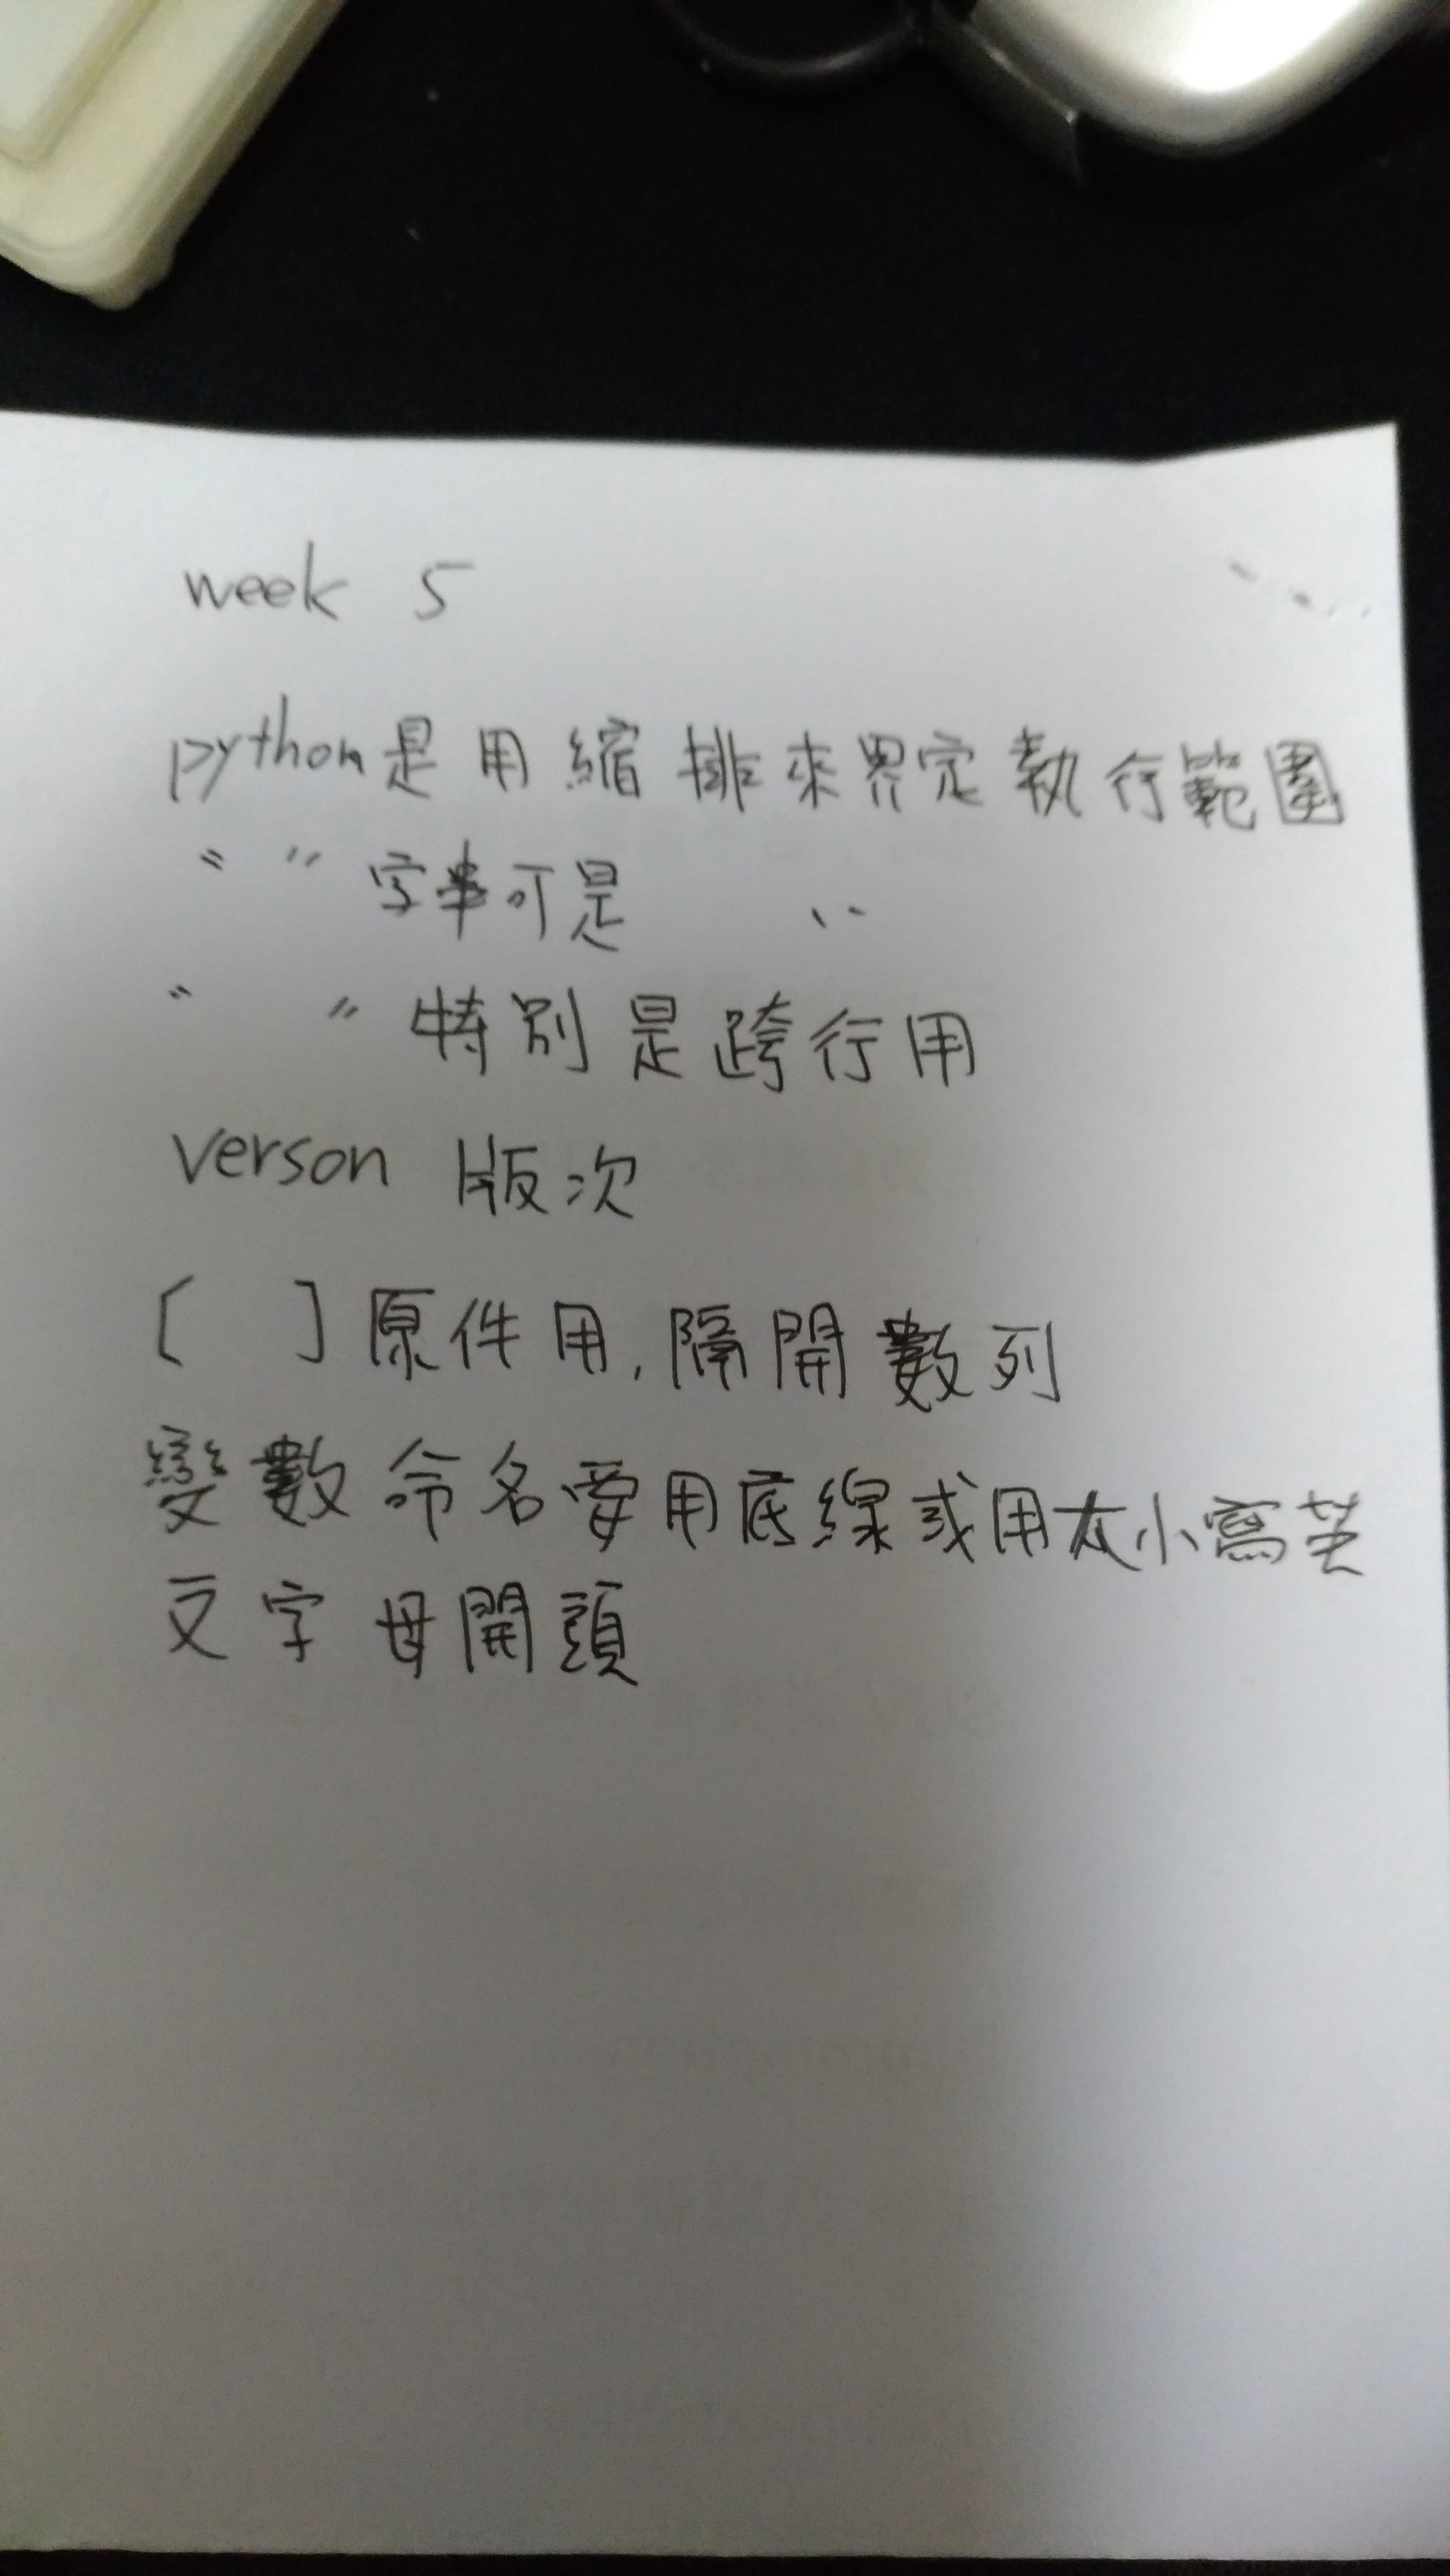 week 5
python是用縮排來界定執行範圍
" " 字串可是 ' '
" " 特別是跨行用
verson 版次
[ ] 原件用, 隔開數列
變數命名要用底線或用大小寫英
文字母開頭